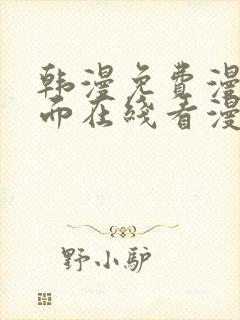 韩漫免费漫
而在线看漫
野小驴